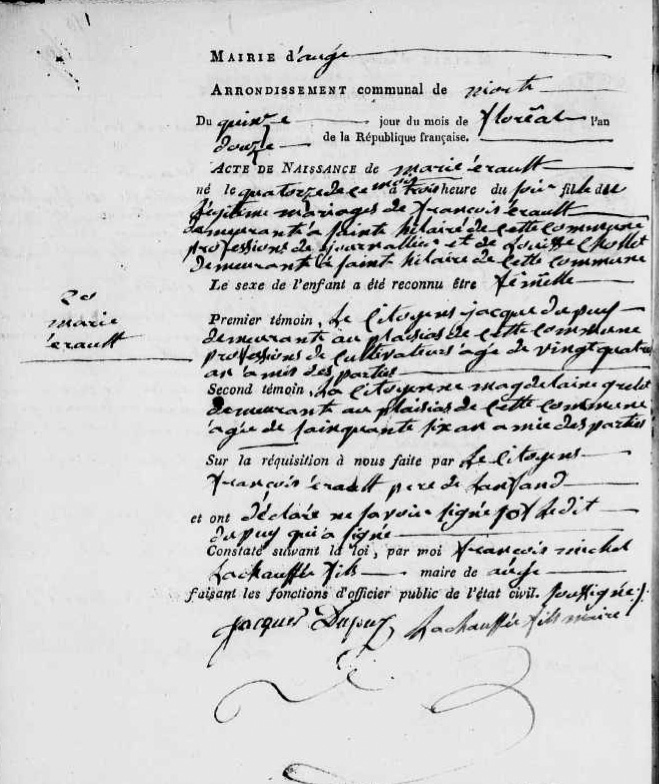 MAIRIE d'augé
ARRONDISSEMENT communal de niort
Du quinze jour du mois de floréal l'an
douze de la République française.
ACTE DE NAISSANCE de marie érault
né le quatorze de ce mois à trois heure du soir fille de
légitime mariages de françois érault
demeurant à saint hilaire de cette commune
professions de journallier et de Louisse Chollot
demeurant à saint hilaire de cette commune
Le sexe de l'enfant a été reconnu être femelle
20
marie
érault
Premier témoin, Le Citoyens jacque dupuy
demeurant au plaisias de cette commune
professions de cultivateurs agé de vingt quatre
an amis des parties
Second témoin, La Citoyenne magdelaine grelet
demeurant au plaisias de cette commune
agée de sainquante six an amie des parties
Sur la réquisition à nous faite par Le Citoyens
françois érault pere de Lanfand
et ont déclaré ne savoir signé ledit
dupuy qui a signé
Constaté suivant la loi, par moi françois michel
Lachauffée fils maire de augé
faisant les fonctions d'officier public de l'état civil. soussigné
Jacques Dupuy Lachauffée fils maire